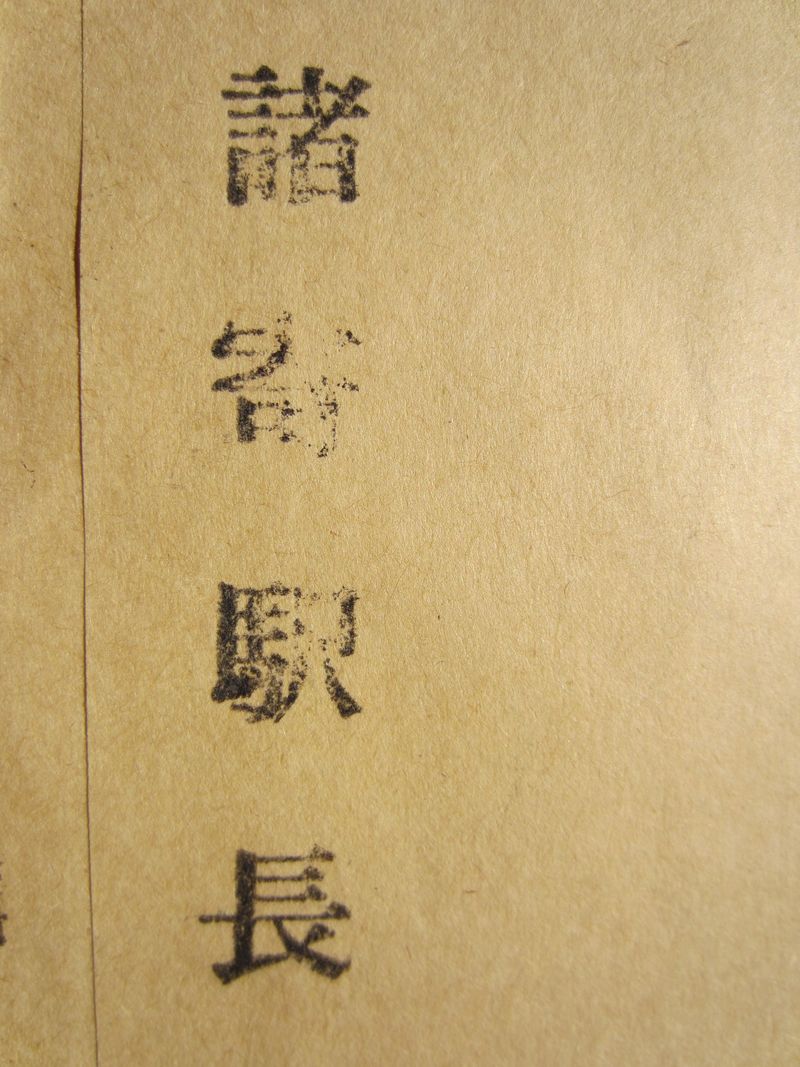 諸寄駅長